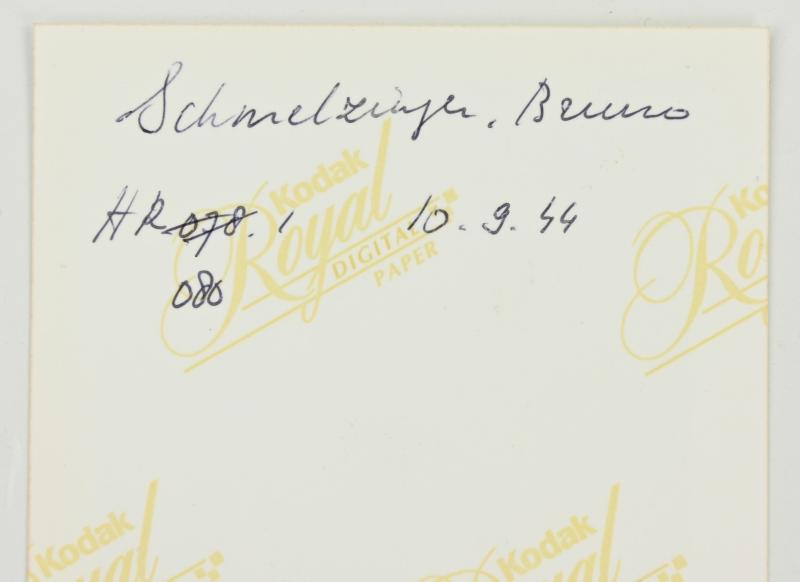 Schmelzinger, Bruno
HR 078.1 10.9.44
080
Kodak
Royal
DIGITAL
PAPER
Ko
Royal
Kodak
Royal
Kodak
Royal